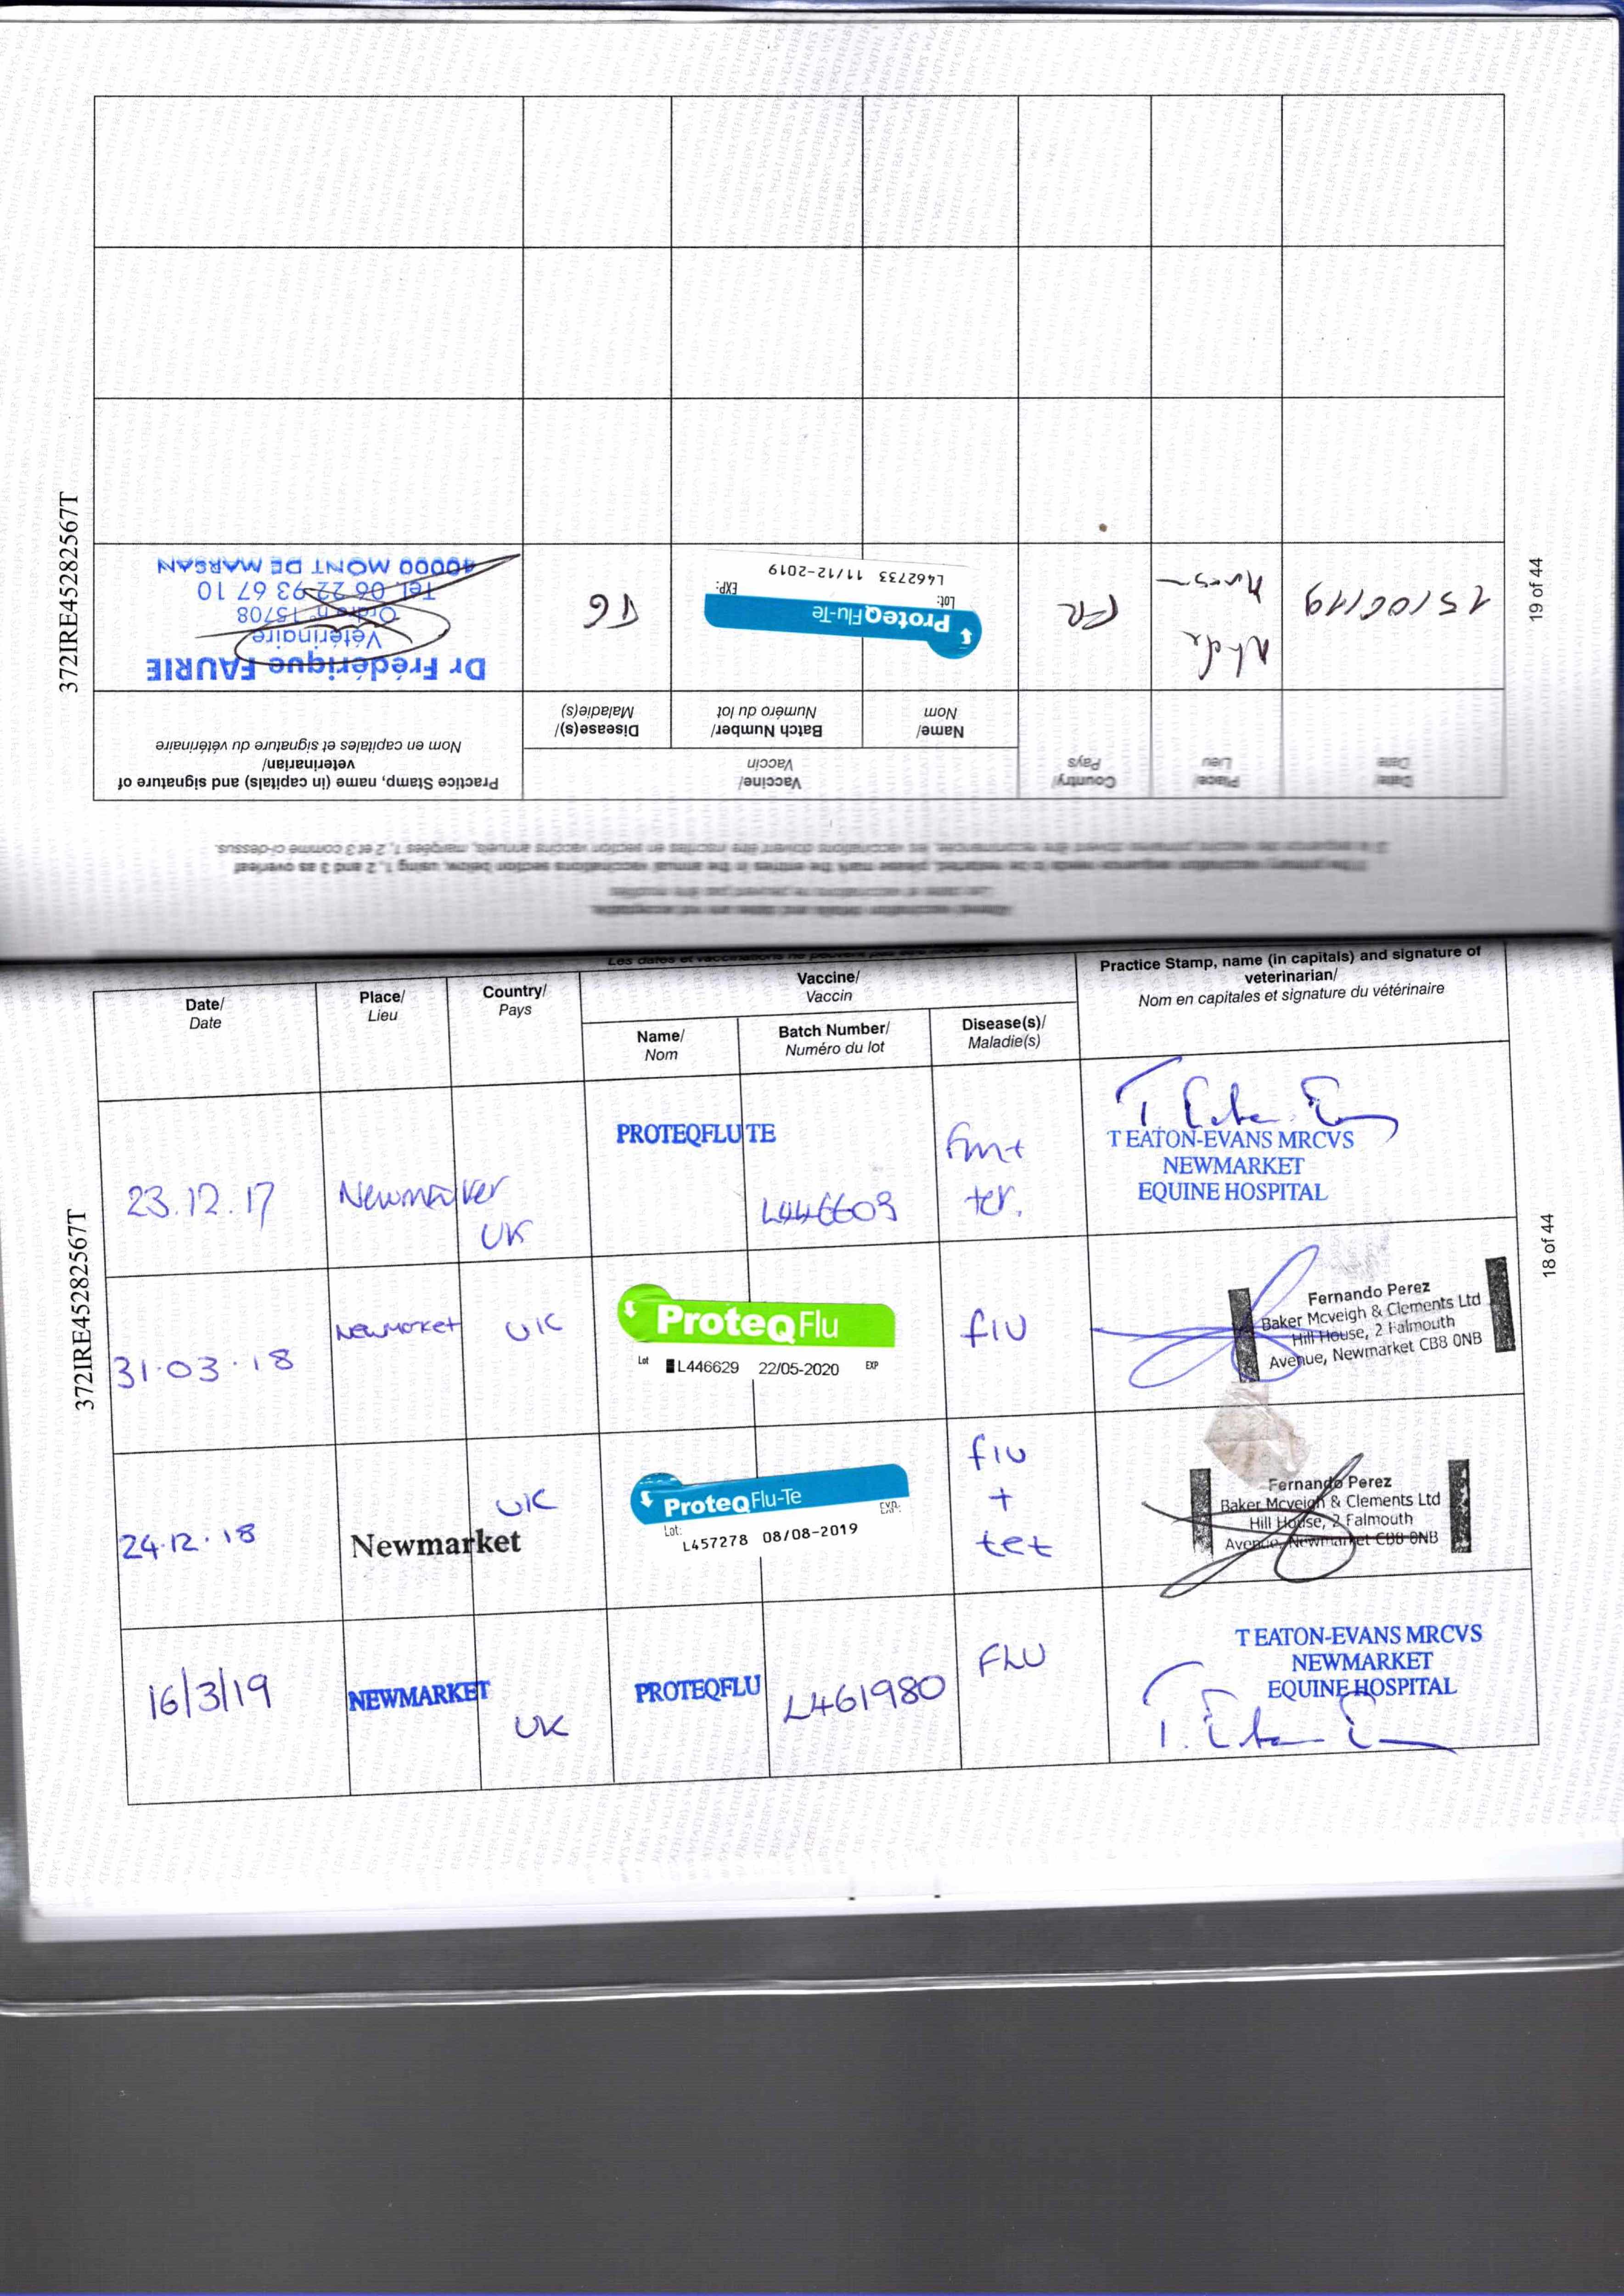 372IRE45282567T
18 of 44
Les dates et vaccinations ne peuvent pas être modifiés
Date/
Date
Place/
Lieu
Country/
Pays
Vaccine/
Vaccin
Name/
Nom
Batch Number/
Numéro du lot
Disease(s)/
Maladie(s)
Practice Stamp, name (in capitals) and signature of
veterinarian/
Nom en capitales et signature du vétérinaire
23.12.17
Newmarket
UK
PROTEQFLU TE
L446609
tet.
T EATON-EVANS MRCVS
NEWMARKET
EQUINE HOSPITAL
31.03.18
Newmarket
UK
ProteqFlu
Lot L446629 22/05-2020 EXP
flu
Fernando Perez
Baker Mcveigh & Clements Ltd
Hill House, 2 Falmouth
Avenue, Newmarket CB8 0NB
24.12.18
Newmarket
UK
ProteqFlu-Te
Lot: EXP.
L457278 08/08-2019
flu
+
tet
Fernando Perez
Baker Mcveigh & Clements Ltd
Hill House, 2 Falmouth
Avenue, Newmarket CB8 0NB
16/3/19
NEWMARKET
UK
PROTEQFLU
L461980
FLU
T EATON-EVANS MRCVS
NEWMARKET
EQUINE HOSPITAL
372IRE45282567T
19 of 44
Altered vaccination details and dates are not acceptable.
Les dates et vaccinations ne peuvent pas être modifiés
If the primary vaccination sequence needs to be restarted, please mark the entries in the annual vaccinations section below, using 1, 2 and 3 as overleaf
Si la séquence des vaccins primaires doivent être recommencée, les vaccinations doivent être inscrites en section vaccins annuels, margées 1, 2 et 3 comme ci-dessus.
Date/
Date
Place/
Lieu
Country/
Pays
Vaccine/
Vaccin
Name/
Nom
Batch Number/
Numéro du lot
Disease(s)/
Maladie(s)
Practice Stamp, name (in capitals) and signature of
veterinarian/
Nom en capitales et signature du vétérinaire
15/06/19
FR
ProteqFlu-Te
Lot: EXP:
L462733 11/12-2019
TG
Dr Frédérique FAURIE
Vétérinaire
Ordre n° 15708
Tel. 06 22 93 67 10
40000 MONT DE MARSAN